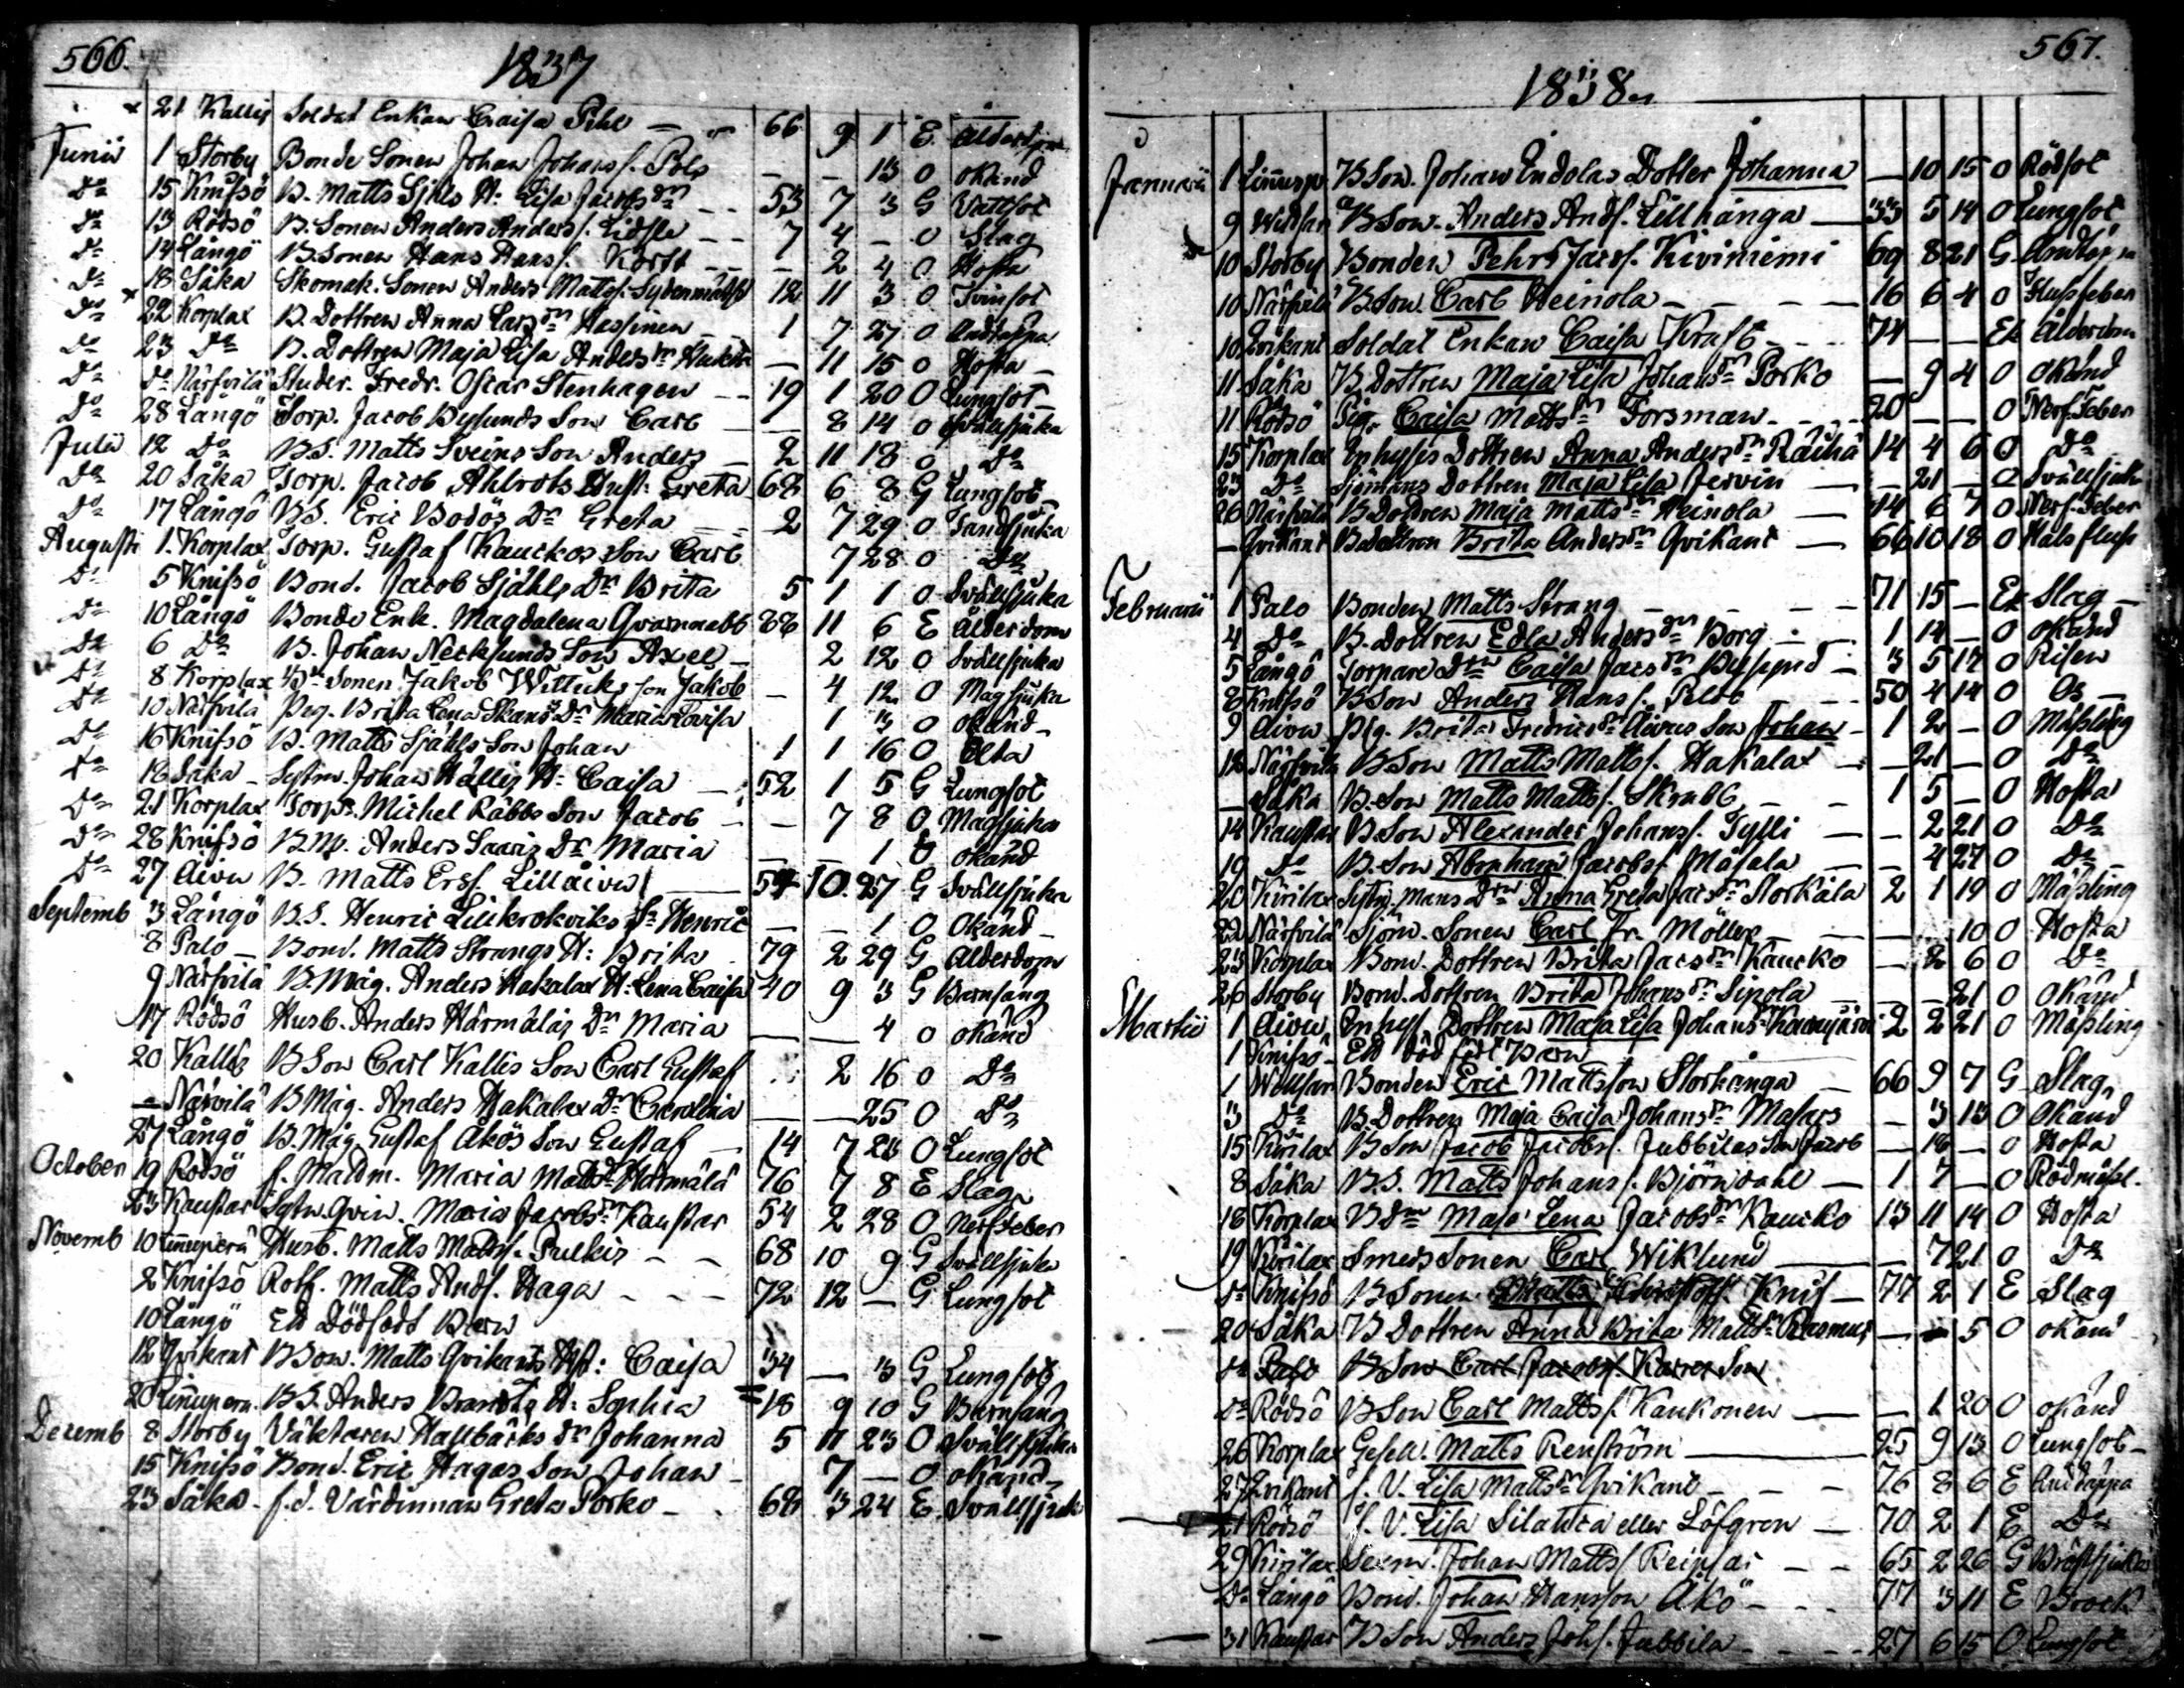 566.
1837
21 Kallis Soldat Enkan Caisa Pihl 66 9 1 E Ålderdom
Junii 1 Storby Bonde Sonen Johan Johans s. Pols — — 13 O okänd
Do 15 Knifsö B. Matts Sjhls H. Lisa Jacobs dr 53 7 3 G Vattsot
Do 13 Rödsö B. Sonen Anders Anders s. 7 4 — O Slag
Do 14 Långö B. Sonen Hans Hans s. — 2 4 O Hosta
Do 18 Såka Skomak. Sonen Anders Matts s. 12 11 3 O Tvinsot
Do 22 Korplax B. Dottren Anna Lars dr Hassinen 1 7 27 O Andtäppa
Do 23 Do B. Dottren Maja Lisa Anders dr — 11 15 O Hosta
Do Do Närfvilä Studer. Fredr. Oscar Stenhagen 19 1 20 O Lungsot
Do 28 Långö Torp. Jacob Bylunds Son Carl — 8 14 O Svållsjuka
Julii 12 Do B.S. Matts Sveins Son Anders 2 11 18 O Do
Do 20 Såka Torp. Jacob Ahlrots Hust. Greta 68 6 8 G Lungsot
Do 17 Långö B.S. Eric Bodös Dr Greta 2 7 29 O Tandsjuka
Augusti 1. Korplax Torp. Gustaf Kauckos Son Carl 7 28 O Do
Do 5 Knifsö Bond. Jacob Sjähls Dr Brita 5 1 1 O Svållsjuka
Do 10 Långö Bonde Enk. Magdalena Qvarnnabb 88 11 6 E Ålderdom
Do 6 Do B. Johan Necksunds Son Axel 2 12 O Svållsjuka
Do 8 Korplax Sonen Jakob Witticks son Jakob — 4 12 O Magsjuka
Do 10 Närfvilä Pig. Brita Lena Skans Dr Maria Lovisa 1 3 O okänd
Do 16 Knifsö B. Matts Sjähls Son Johan 1 1 16 O Älta
Do 18 Såka Sytnn. Johan Kallis H. Caisa 52 1 5 G Lungsot
Do 21 Korplax Torpr. Michel Råbbs Son Jacob — 7 8 O Magsjuka
Do 28 Knifsö B.M. Anders Saaris Dr Maria — — 1 O okänd
Do 27 Aivu B. Matts Ers s. Lillåivu 54 10. 27 G Svållsjuka
Septemb 3 Långö B.S. Henric Lillkrokviks Sn Henric — — 1 O Okänd
8 Palo Bond. Matts Strangs H: Brita 79 2 29 G Ålderdom
9 Närfvilä B. Måg. Anders Hakalax H. Lena Caisa 40 9 3 G Barnsäng
17 Rödsö Husb. Anders Härmäläs Dr Maria — — 4 O okänd
20 Kallis B Son Carl Kallis Son Carl Gustaf 2 16 O Do
— Närvilä B Måg. Anders Hakalax Dr Carolina — — 25 O Do
27 Långö B. Måg Gustaf Åkös Son Gustaf 14 7 23 O Lungsot
October 19 Rödsö f. Madm. Maria Matts dr Härmälä 76 7 8 E Slag
23 Kaustar Sytn. Qvin. Maria Jacobs dr Kaustar 54 2 28 O Nerffeber
Novemb 10 Linnuperä Husb. Matts Matts s. Pulkis 68 10 9 G Svållsjuka
2 Knifsö Rotf. Matts Ands s. Haga 72 12 — G Lungsot
10 Långö Ett Dödfödt Barn
12 Qvikant Bson. Matts Qvikants Hst: Caisa 34 — 3 G Lungsot
20 Linnupera. B.S. Anders Brandts H: Sophia 18 9 10 G Barnsäng
Decemb 8 Storby Väktaren Hallbäcks dr Johanna 5 11 23 O Svållsjuka
15 Knifsö Bond. Eric Hagas Son Johan 7 — O okänd
23 Såka f.d. Värdinnan Greta Porko 68 3 24 E Svållsjuka
567.
1838.
Januarii 1 Linnusp. B Son. Johan Indolas Dotter Johanna — 10 15 O Rödsot
9 B Son. Anders Ands s. Lillkånga 33 5 14 O Lungsot
10 Storby Bonden Pehr Jacs s. Kiviniemi 69 8 21 G
10 Närfvilä B Son. Carl Heinola 16 6 4 O
10 Qvikant Soldat Enkan Caisa Kraft 74 — — Ek Ålderdom
11 Såka B. Dottren Maja Lisa Johans dr Porko — 9 4 O Okänd
11 Rödsö Pig. Caisa Matts dr Forsman 20 — — O Nerf. Feber
15 Korplax Inhyses Dottren Anna Anders dr Räihä 14 4 6 O Do
23 Do Sjömans Dottren Maja Lisa Jervin — — 21 — O Svållsjuka
26 Närfvilä B Dottren Maja Matts dr Heinola 14 6 7 O Nerf. Feber
— Qvikant B. Dottren Brita Anders dr Qvikant 66 10 18 O Halsfluss
Februarii 1 Palo Bonden Matts Strang 71 15 — Ek Slag
4 Do B. Dottren Edla Anders dr Borg 1 14 — O okänd
5 Långö Torpare Dtrn Caisa Jacs dr Byskund 3 5 17 O Risen
8 Knifsö B Son Anders Hans s. Peldt 50 4 14 O Do
9 Aivu Pig. Brita Fredrics dr Aivus Son Johan 1 2 — O Mässling
12 Närfvilä B Son Matts Matts s. Hakalax — 21 — O Do
— Såka B. Son Matts Matts s. Skrabb 1 5 — O Hosta
14 Kaustar B Son Alexander Johans s. Tylli — 2 21 O Do
19 Do B. Son Abraham Jacobs s. Måsala — 4 27 O Do
20 Kirilax Sytn. Mans Drn Anna Greta Jacs dr Storkäla 2 1 19 O Mässling
22 Närfvilä Sjöm. Sonen Carl Fr. Möller — — 10 O Hosta
23 Korplax Bond. Dottren Brita Jacs dr Kaucko — 2 6 O Do
26 Storby Bond. Dottren Brita Johans dr Sipola — — 21 O Okänd
Martii 1 Aivu Inhyss Dottren Maja Lisa Johans dr 2 2 21 O Mässling
1 Knifsö Ett död född Barn
1 Bonden Eric Mattsson Storkånga 66 9 7 G Slag
3 Do B. Dottren Maja Caisa Johans dr Masars — 3 13 O Okänd
15 Kirilax B Son Jacob Jacobs s. Jubbilas Son Jacob — 18 — O Hosta
8 Såka B.S. Matts Johans s. Björndahl 1 7 — O Rödmässl.
18 Korplax B Drn Maja Lena Jacobs dr Kaucko 13 11 14 O Hosta
19 Kirilax Smeds Sonen Carl Wiklund — 7 21 O Do
Do Knifsö B Sonen Matts Knif 77 2 1 E Slag
20 Såka B Dottren Anna Brita Matts dr Rasmus — — 5 O okänd
Do Palo B Son Carl Jacobs s. Karres Son
Do Rödsö B Son Carl Matts s. Kaukonen — 1 20 O okänd
26 Korplax Gesell. Matts Renström 25 9 13 O Lungsot
27 Qvikant f. V. Lisa Matts dr Qvikant 76 8 6 E Andtäppa
21 Rödsö f. V. Lisa Silahka eller Löfgren 70 2 1 E Do
29 Kirilax Sexm. Johan Matts s. Reipsar 65 2 26 G Bröstsjuka
Do Långö Bond. Johan Hansson Åkö 77 3 11 E Brock
31 Kaustar B Son Anders Joh s. Jubbila 27 6 15 O Lungsot